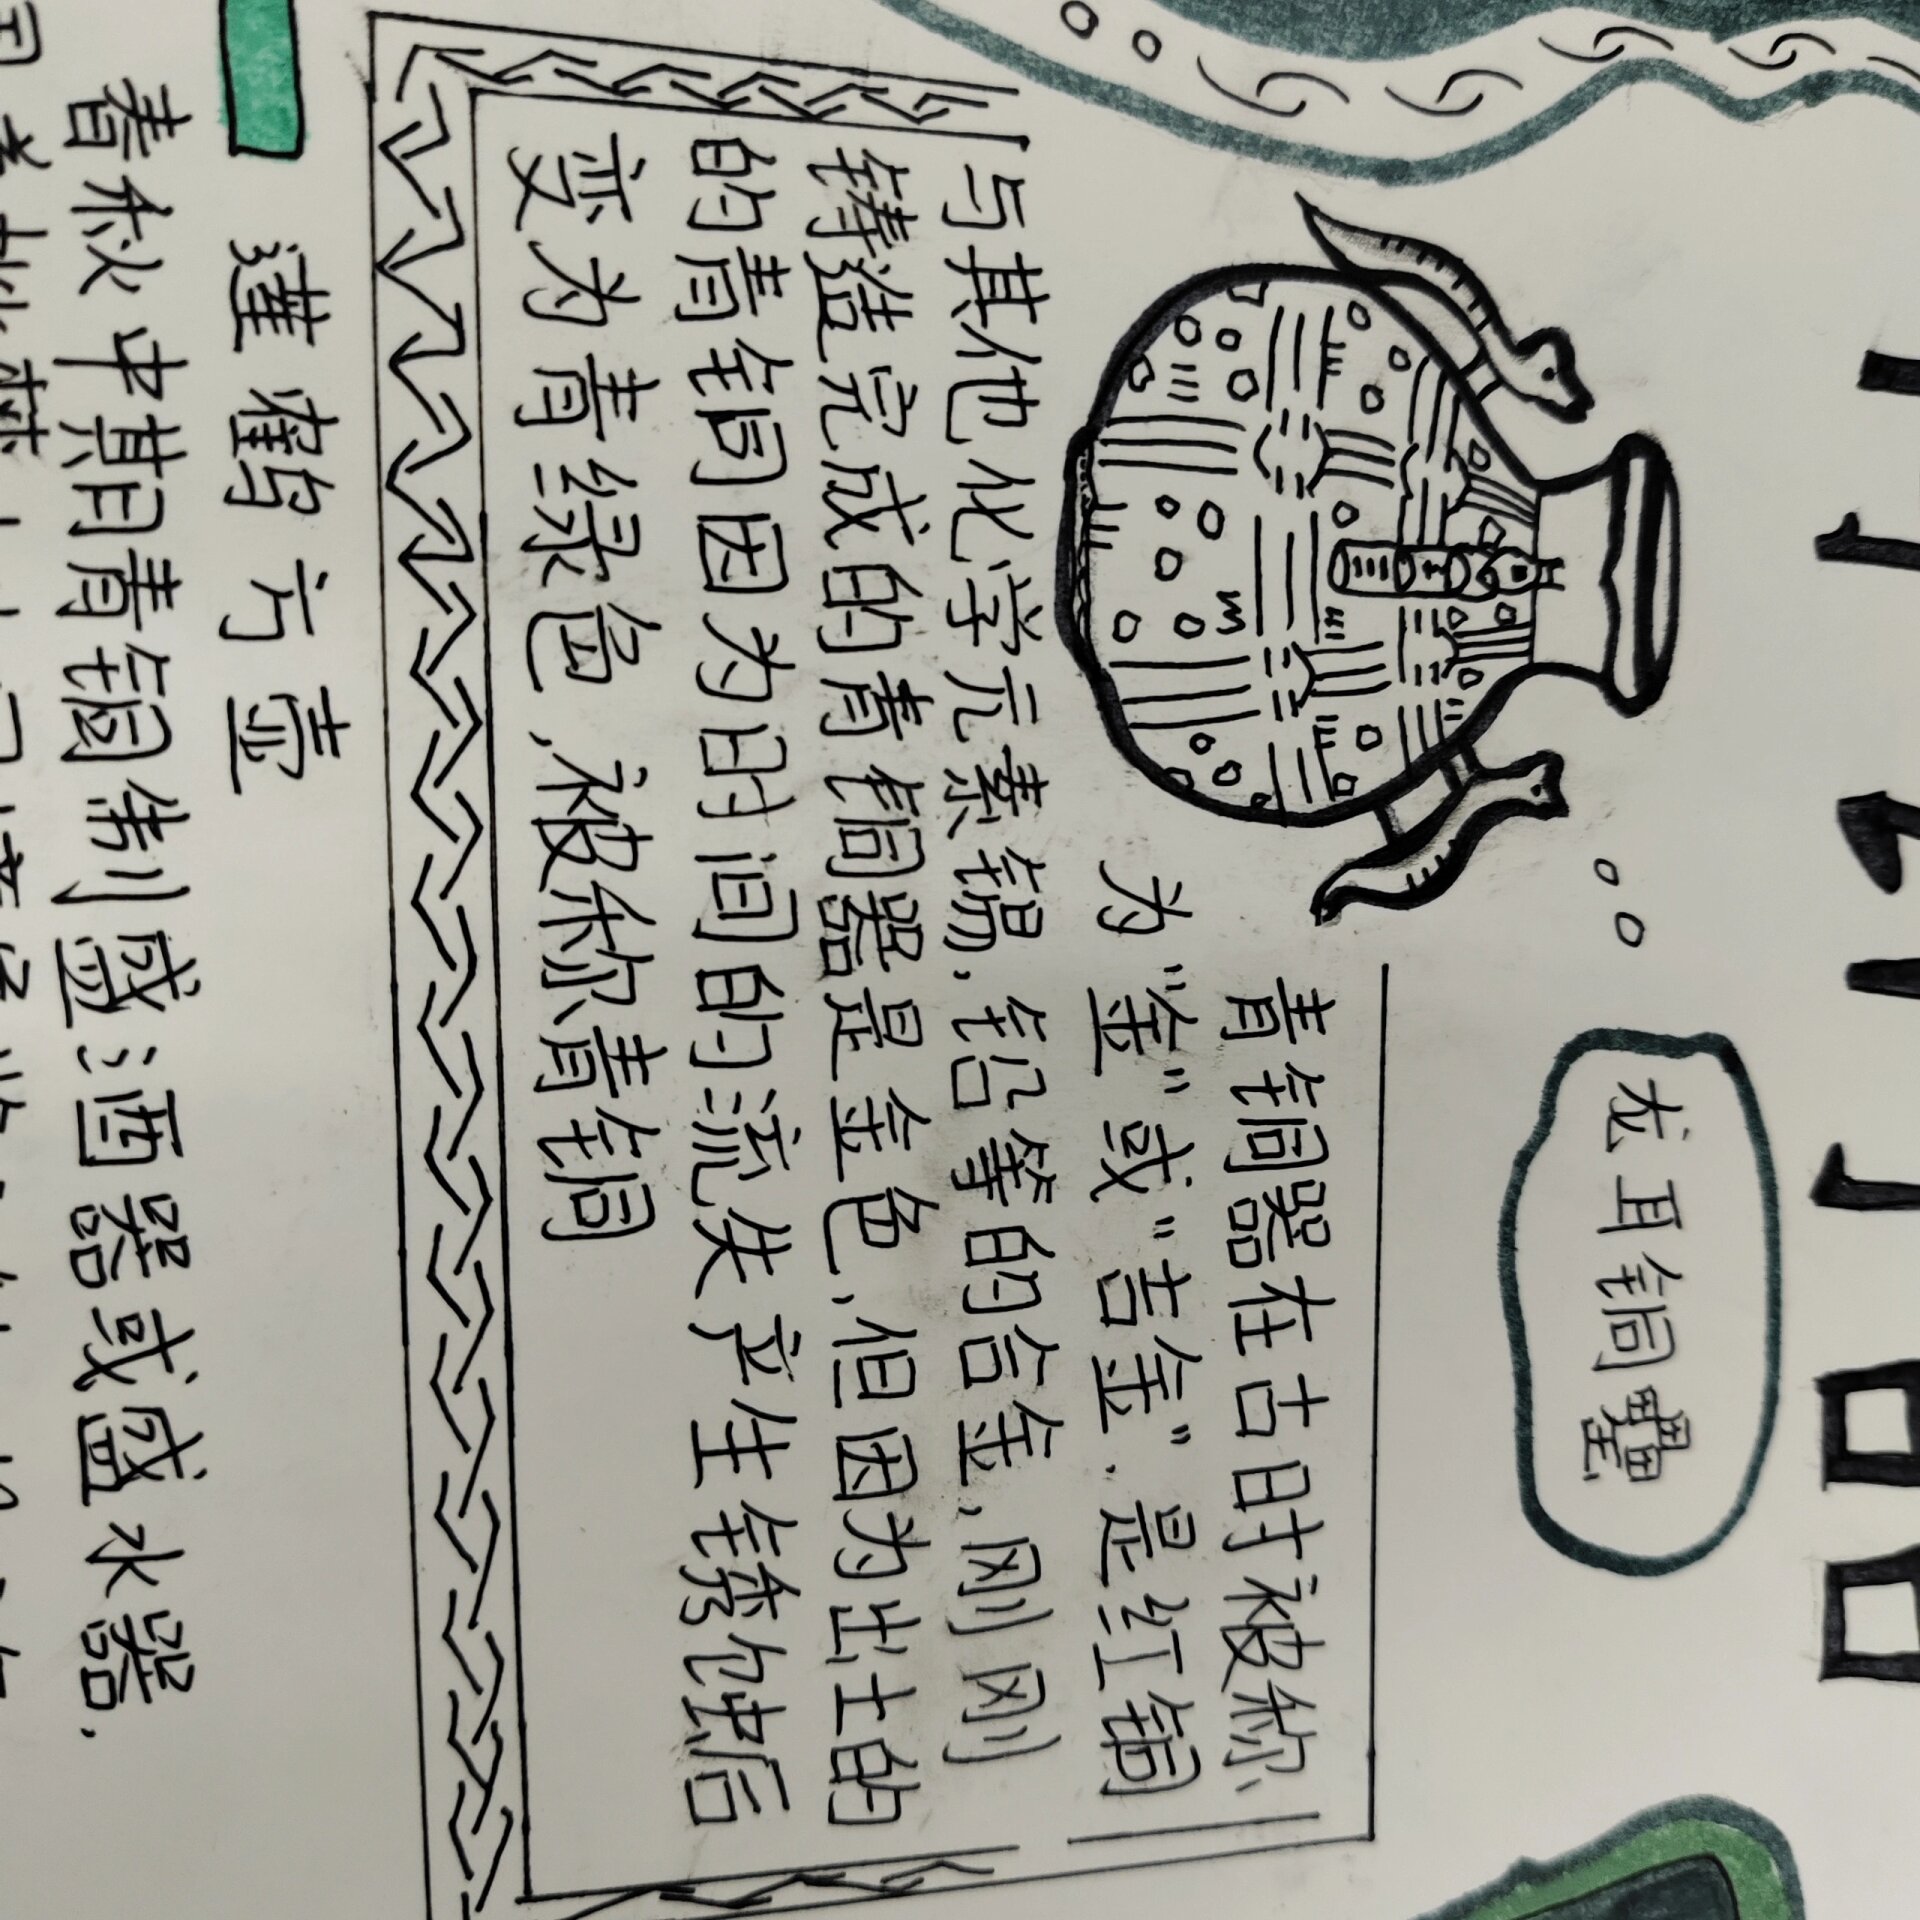 龙耳铜罍
青铜器在古时被称
为"金"或"吉金".是红铜
与其他化学元素锡,铅等的合金,刚刚
铸造完成的青铜器是金色,但因为出土的
的青铜因为时间的流失产生锈蚀后
变为青绿色,被称青铜
莲鹤方壶
春秋中期青铜制盛酒器或盛水器.